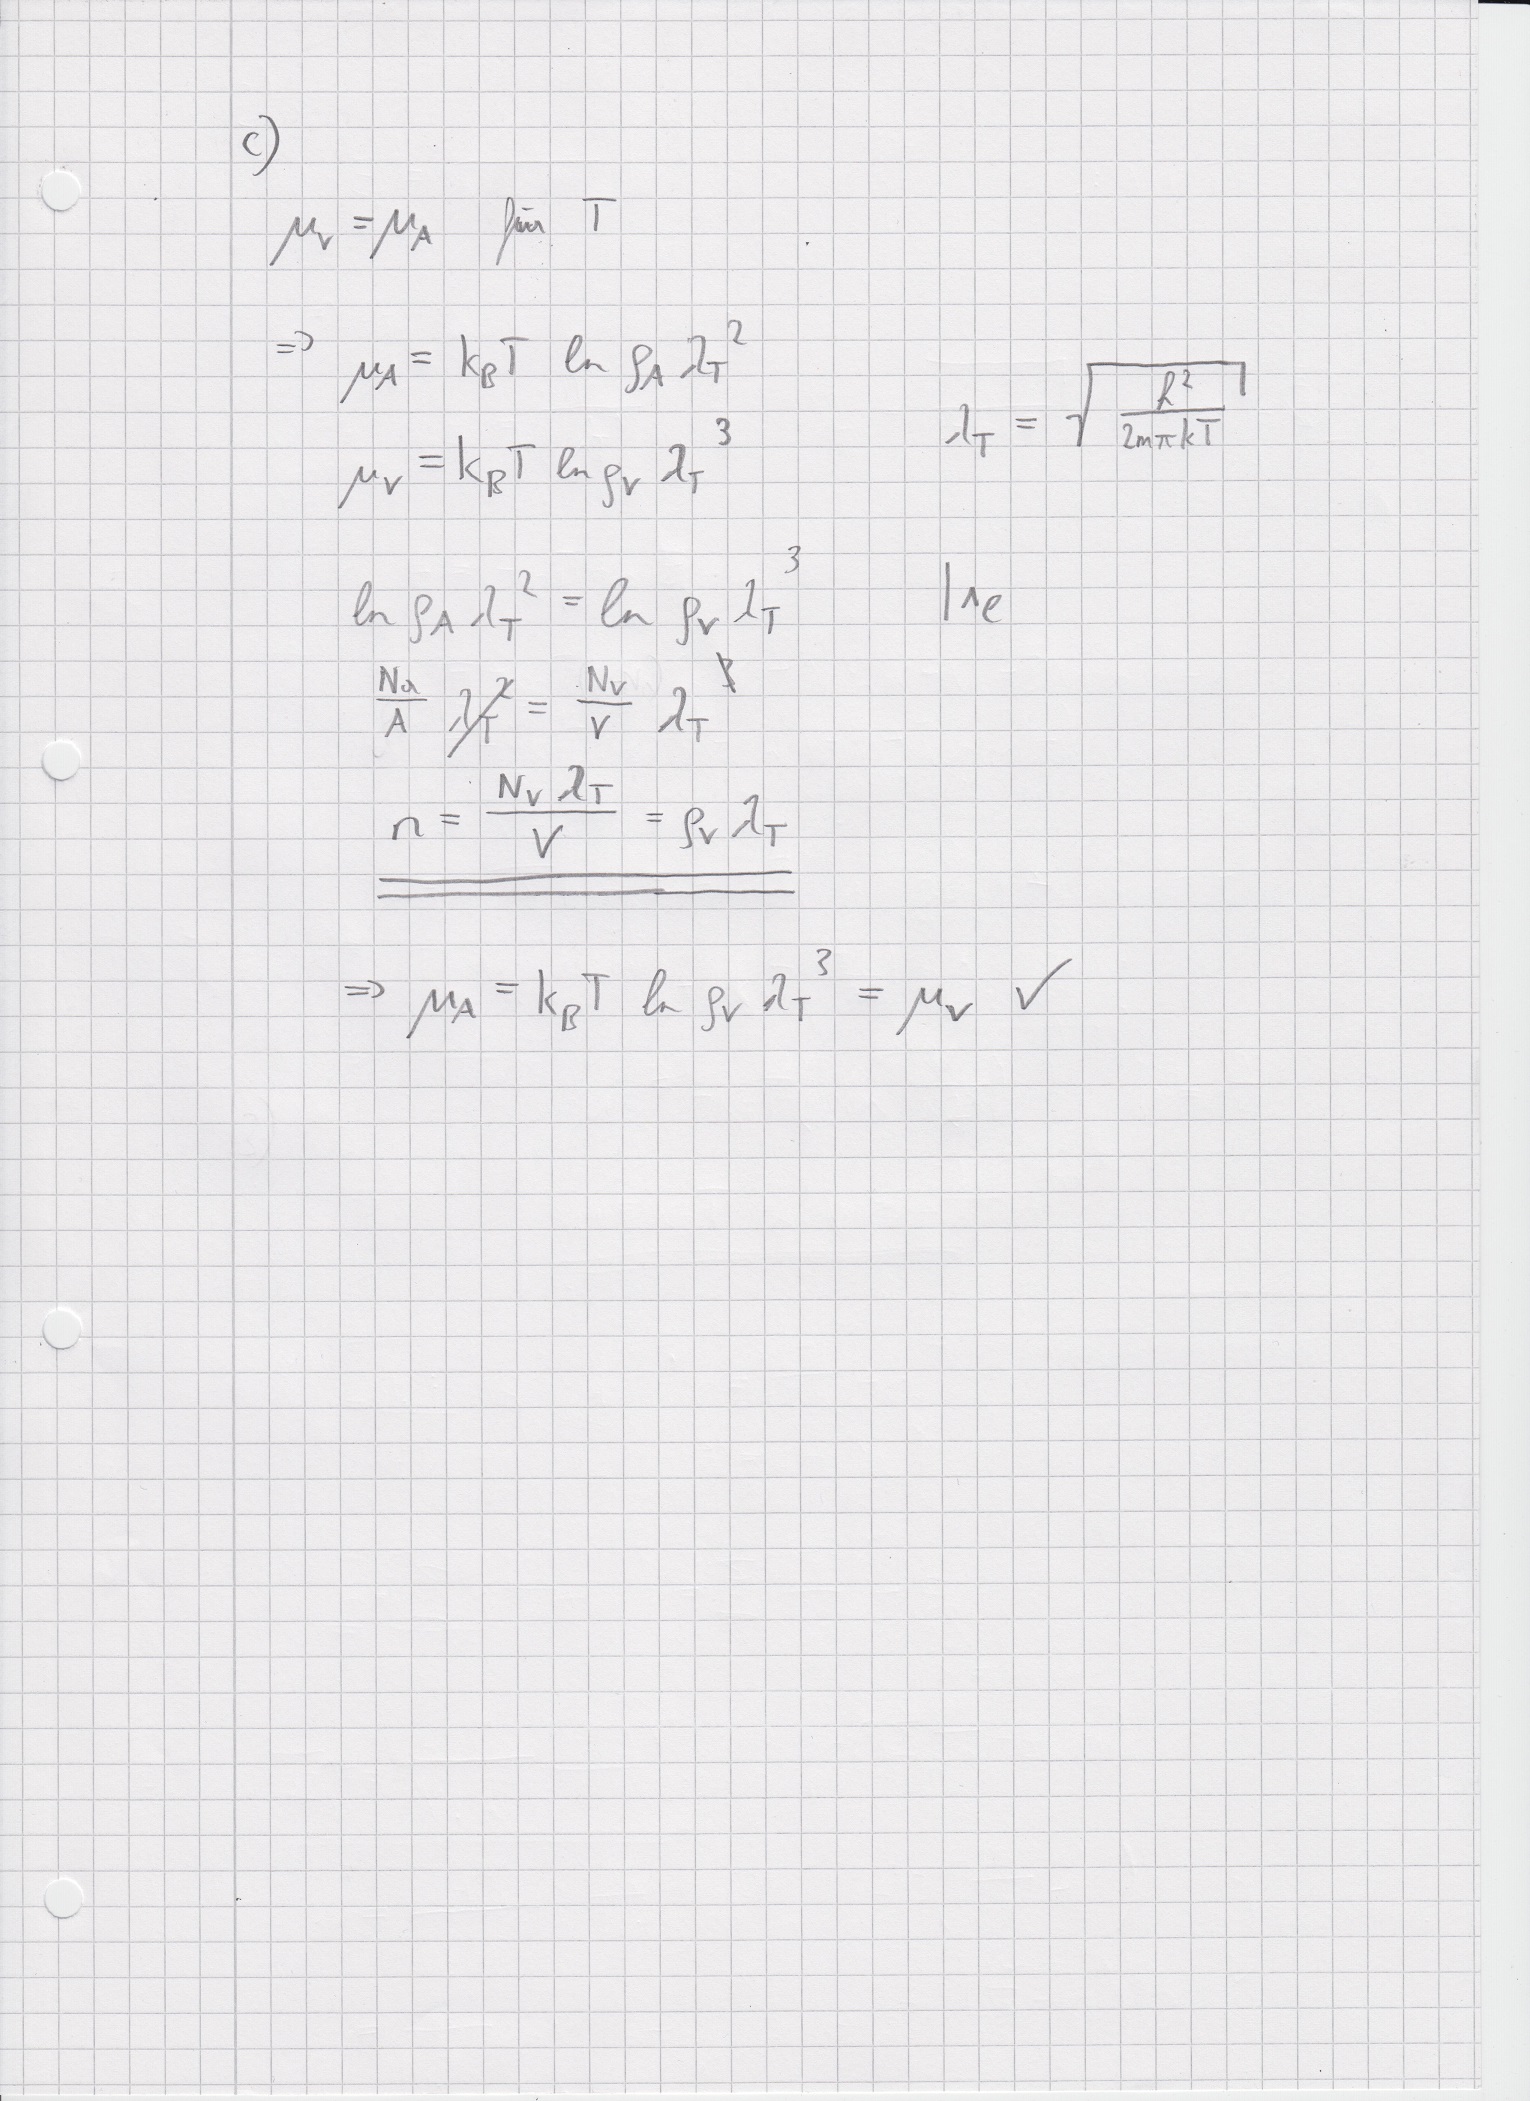 c)
μ_V = μ_A für T
⇒ μ_A = k_B T ln ρ_A λ_T^2
λ_T = √(h^2 / (2mπkT))
μ_V = k_B T ln ρ_V λ_T^3
ln ρ_A λ_T^2 = ln ρ_V λ_T^3 | ^e
N_a/A λ_T^2 = N_V/V λ_T^3
n = N_V λ_T / V = ρ_V λ_T
⇒ μ_A = k_B T ln ρ_V λ_T^3 = μ_V ✓